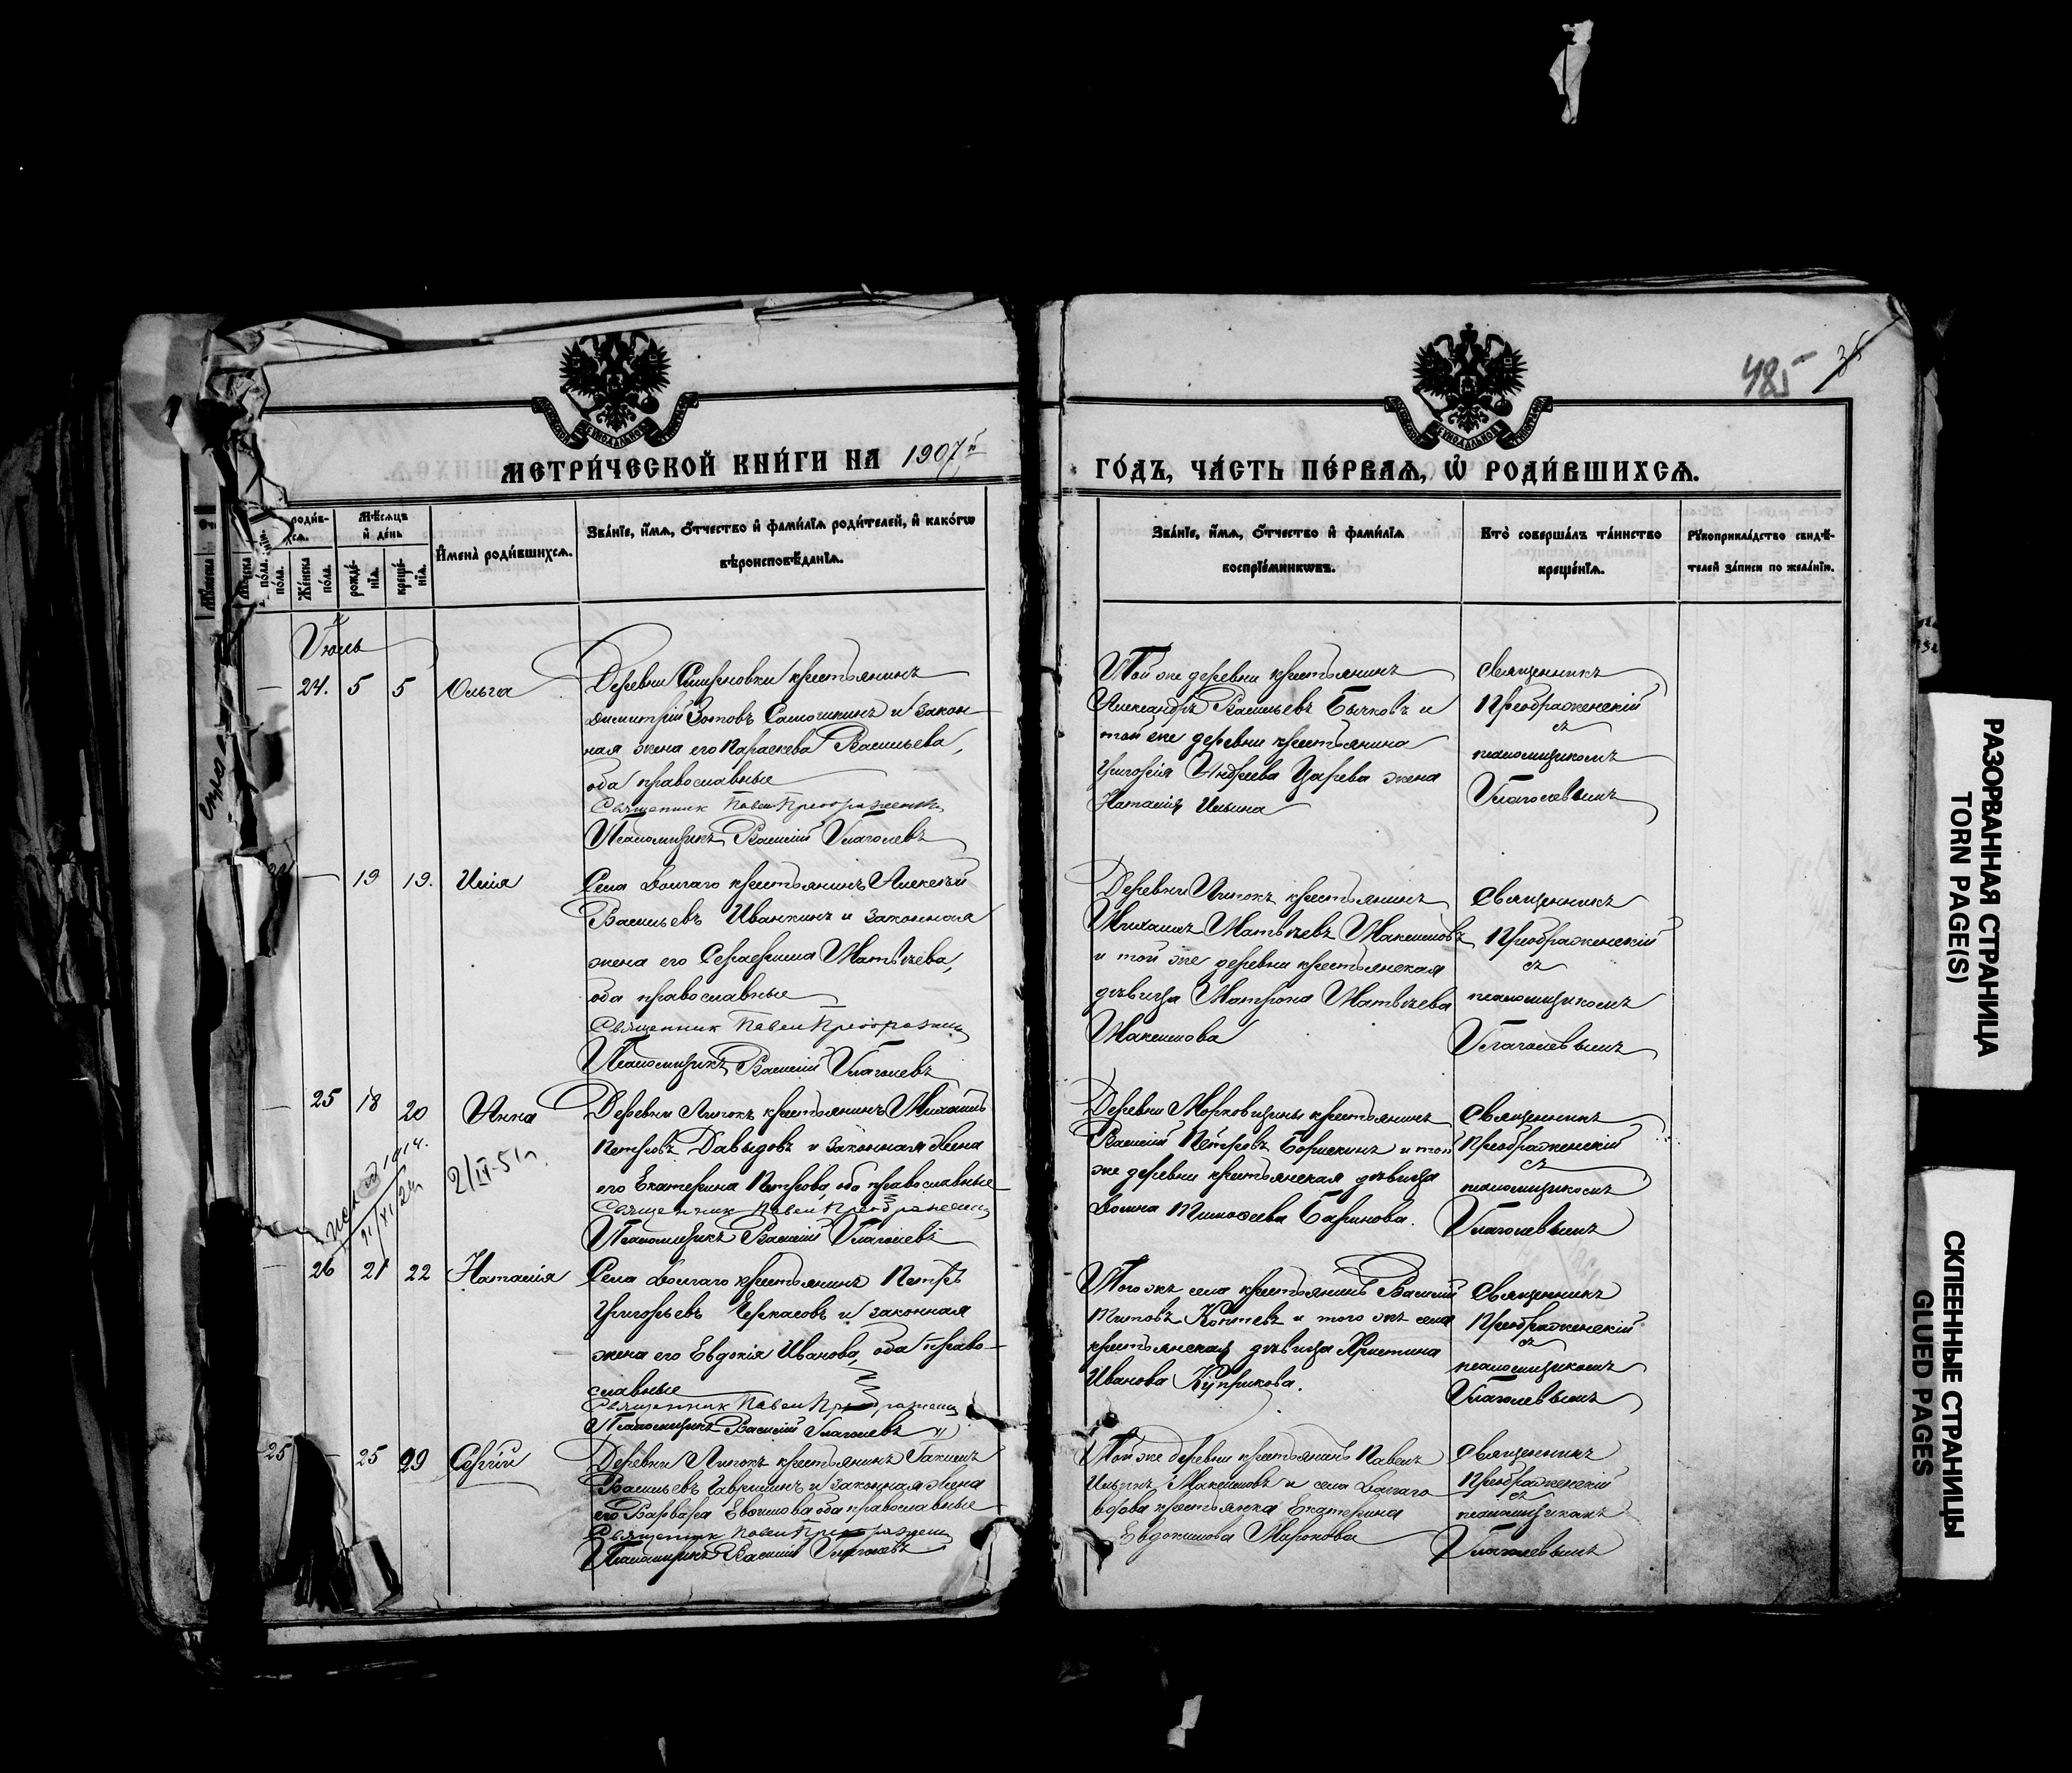 485
35
МЕТРИ́ЧЕСКОЙ КНИ́ГИ НА 1907й
ГО́ДЪ, ЧА́СТЬ ПЕ́РВАѦ, Ѡ РОДИ́ВШИХСѦ.
Мѣсѧцъ
и день
рожде́-
нїѧ.
креще́-
нїѧ.
Же́нска
по́ла.
Имена̀ роди́вшихсѧ.
Зва́нїе, и҆́мѧ, о҆́тчество и҆ фами́лїѧ роди́телей, и҆ како́гѡ
вѣроисповѣ́данїѧ.
Зва́нїе, и҆́мѧ, о҆́тчество и҆ фами́лїѧ
воспрїе́мникѡвъ.
Кто̀ соверша́лъ та́инство
креще́нїѧ.
Рꙋкоприкла́дство свидѣ́-
телей за́писи по жела́нїю.
Июль
24. 5 5 Ольга
Деревни Смирновки крестьянинъ
Димитрій Зотовъ Самошкинъ и закон-
ная жена его Параскева Васильева,
оба православные
Священник Павел Преображенский
Псаломщикъ Василій Глаголевъ
Той же деревни крестьянинъ
Александръ Васильевъ Бычковъ и
той же деревни крестьянина
Григорія Андреева Царева жена
Наталія Ильина
Священникъ
Преображенскій
съ
псаломщикомъ
Глаголевымъ
19 19. Илія
Села Долгаго крестьянинъ Алексѣй
Васильевъ Иванкинъ и законная
жена его Серафима Матвѣева,
оба православные
Священник Павел Преображенский
Псаломщикъ Василій Глаголевъ
Деревни Липокъ крестьянинъ
Михаилъ Матвѣевъ Максимовъ
и той же деревни крестьянская
дѣвица Матрона Матвѣева
Максимова
Священникъ
Преображенскій
съ
псаломщикомъ
Глаголевымъ
25 18 20 Анна
2/IV-51г.
Деревни Липокъ крестьянинъ Михаилъ
Петровъ Давыдовъ и законная жена
его Екатерина Петрова, оба православные
Священник Павел Преображенский
Псаломщикъ Василій Глаголевъ
Деревни Морковщины крестьянинъ
Василій Петровъ Борискинъ и той
же деревни крестьянская дѣвица
Домна Тимоѳеева Баринова.
Священникъ
Преображенскій
съ
псаломщикомъ
Глаголевымъ
26 21 22 Наталія
Села Долгаго крестьянинъ Петръ
Григорьевъ Черкасовъ и законная
жена его Евдокія Иванова, оба право-
славные
Священник Павел Преображенский
Псаломщикъ Василій Глаголевъ
Того жъ села крестьянинъ Василій
Титовъ Коптевъ и того жъ села
крестьянская дѣвица Христина
Иванова Куприкова.
Священникъ
Преображенскій
съ
псаломщикомъ
Глаголевымъ
25 25 29 Сергій
Деревни Липокъ крестьянинъ Іакимъ
Васильевъ Гаврилинъ и законная жена
его Варвара оба православные
Священник Павел Преображенский
Псаломщикъ Василій Глаголевъ
Той же деревни крестьянинъ Павелъ
Ильинъ Максимовъ и села Долгаго
вдова крестьянка Екатерина
Евдокимова Миронова
Священникъ
Преображенскій
съ
псаломщикомъ
Глаголевымъ
РАЗОРВАННАЯ СТРАНИЦА
TORN PAGE(S)
СКЛЕЕННЫЕ СТРАНИЦЫ
GLUED PAGES